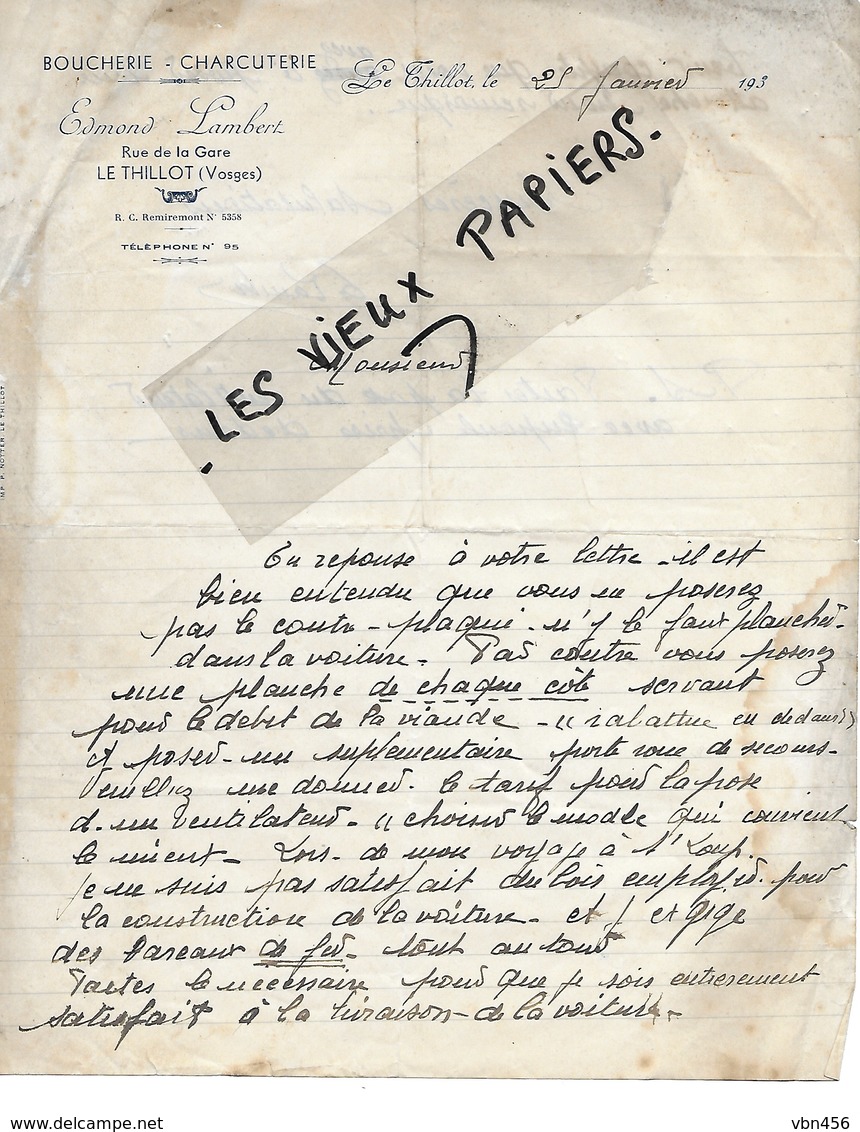 BOUCHERIE - CHARCUTERIE
Le Thillot, le 25 Janvier 193
Edmond Lambert
Rue de la Gare
LE THILLOT (Vosges)
R. C. Remiremont N° 5358
TÉLÉPHONE N° 95
. LES VIEUX PAPIERS.
Monsieur
IMP. P. NOTTER LE THILLOT
En reponse à votre lettre - il est
bien entendu que vous ne poserez
pas le contre - plaqué - n'y le faux plancher.
dans la voiture - Par contre vous poserez
une planche de chaque côté servant
pour le debit de la viande - "rabattue en dedans"
et poser - un suplementaire porte roue de secours -
Veuillez me donner. le tarif pour la pose
d. un Ventilateur - "choisir le modele qui convient
le mieux - Lors - de mon voyage à St Loup.
je ne suis pas satisfait du bois employer. pour
la construction de la voiture - et j exige
des bareaux de fer - tout autour
Faites le necessaire pour que je sois entierement
satisfait à la livraison - de la voiture -
delcampe.net
vbn456